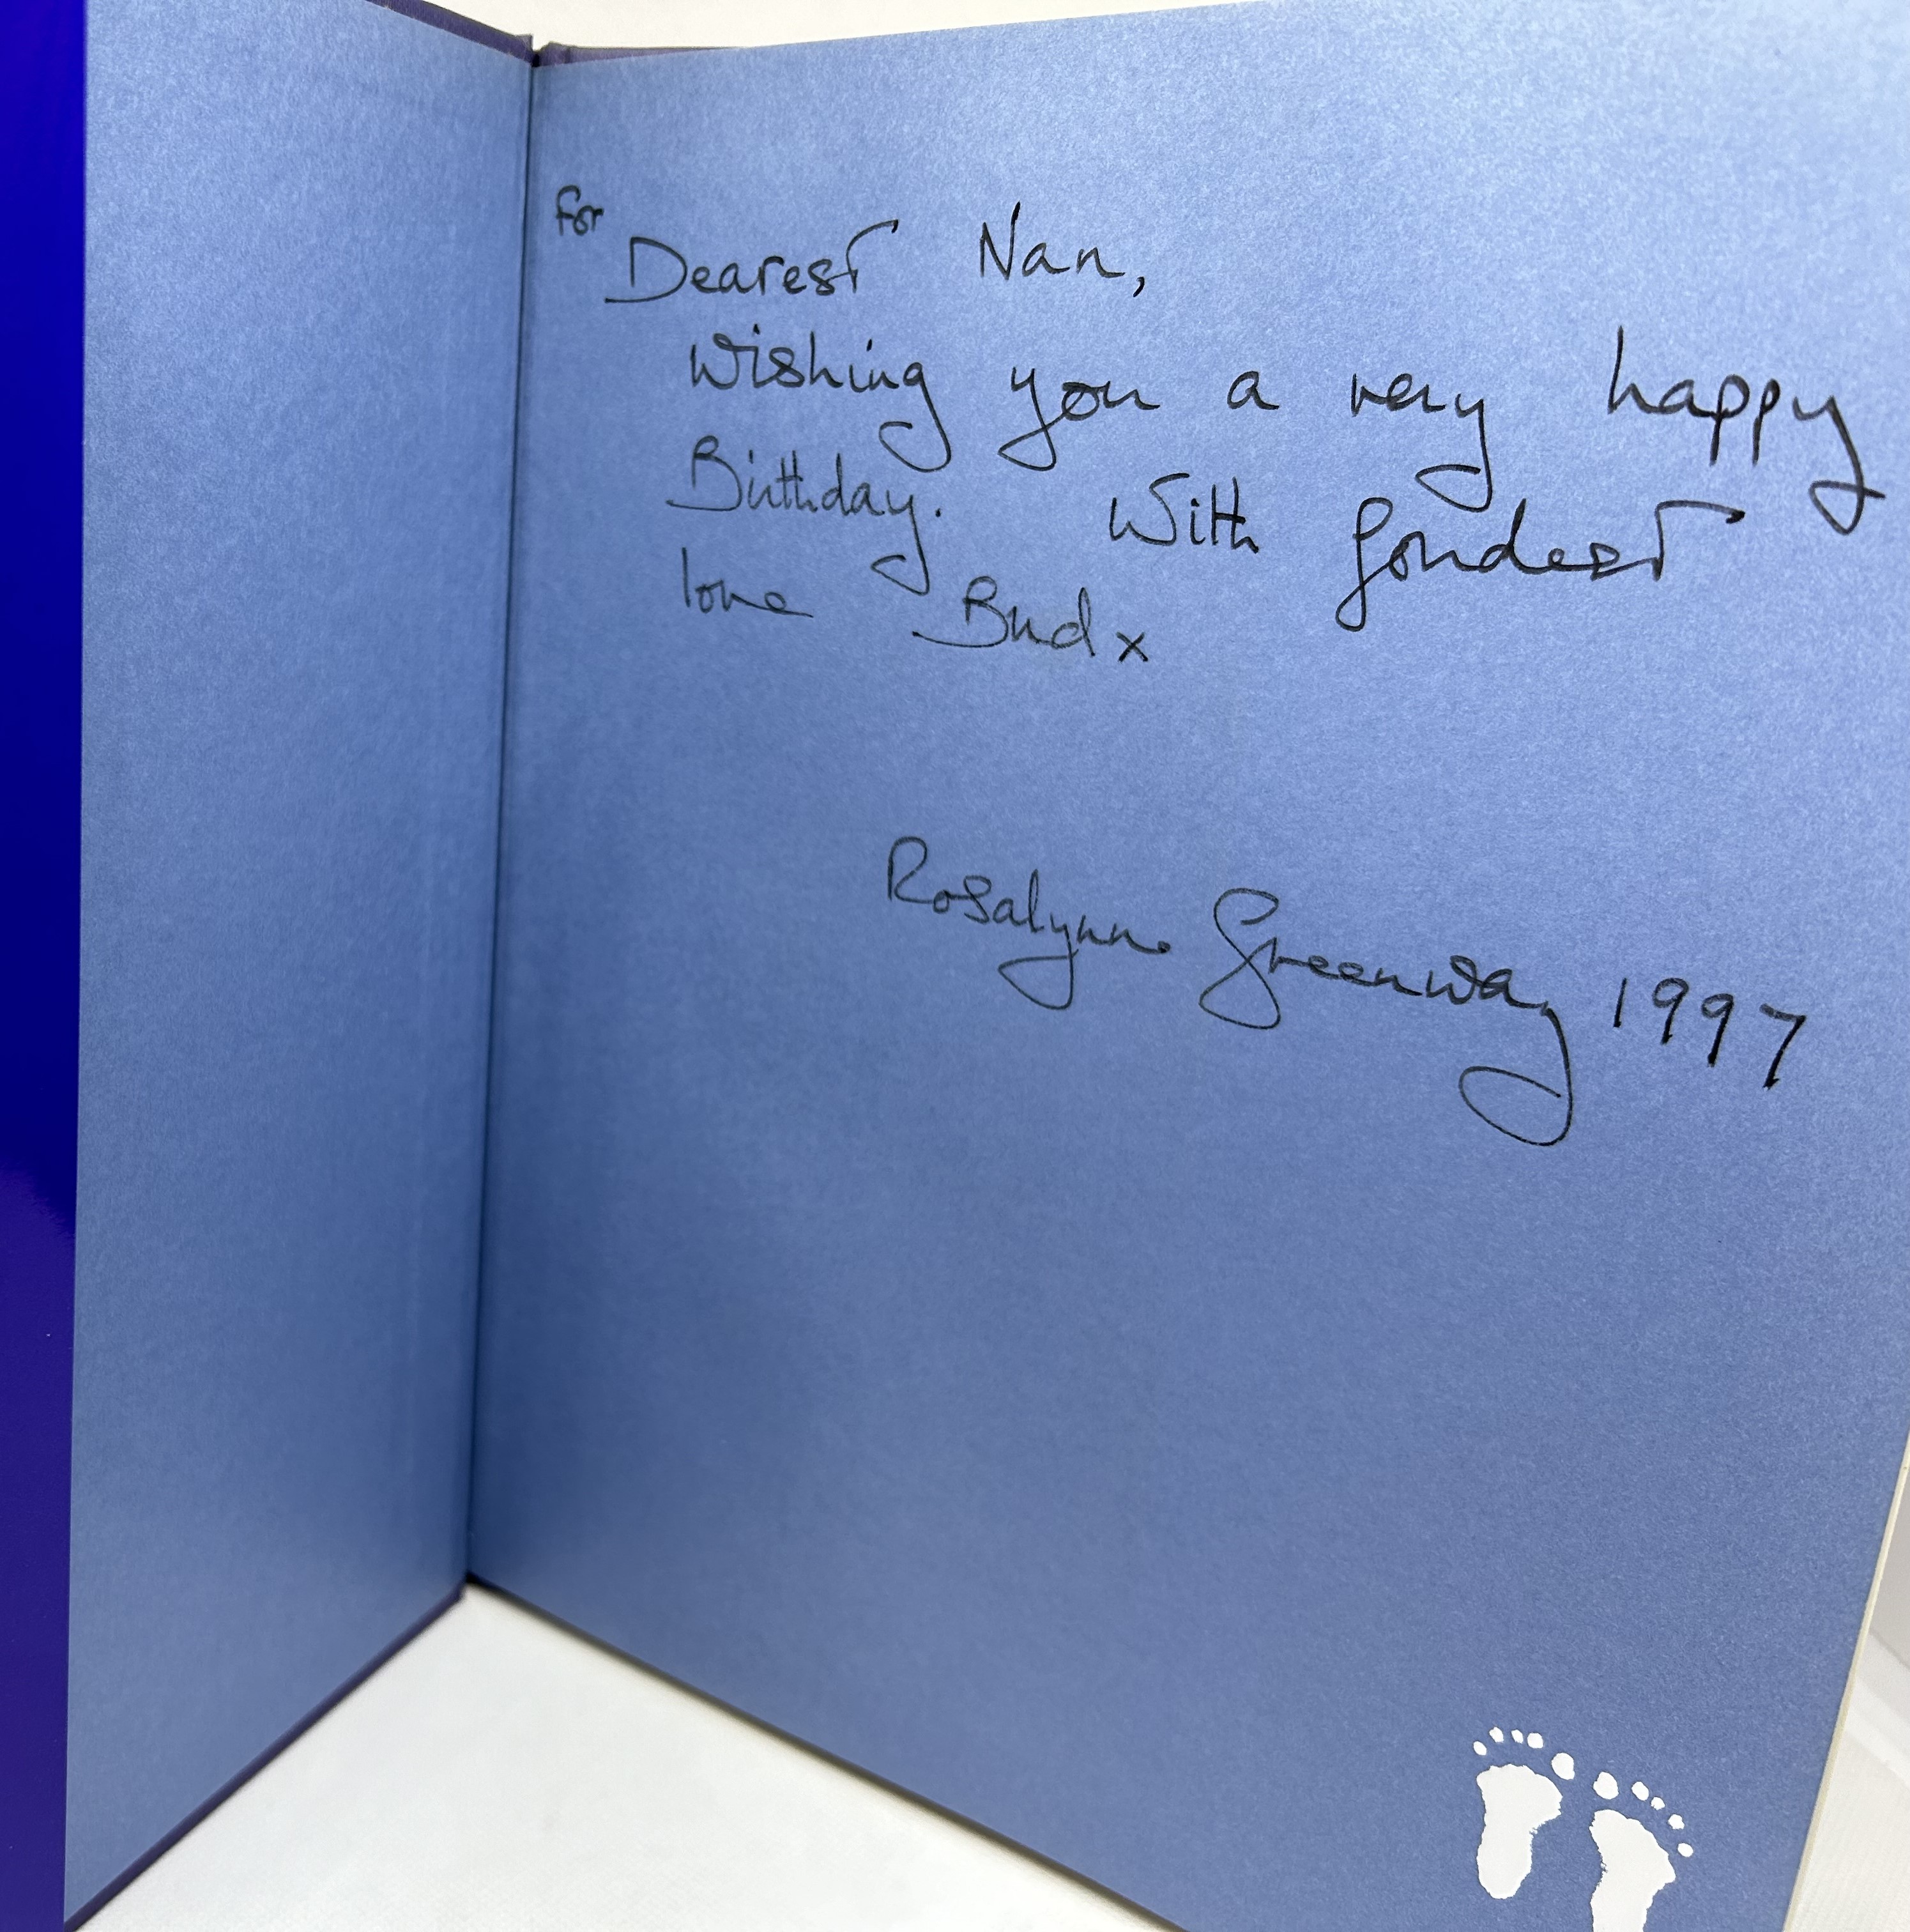 for
Dearest Nan,
Wishing you a very happy
Birthday. With fondest
love Bud x
Rosalynne Greenway 1997